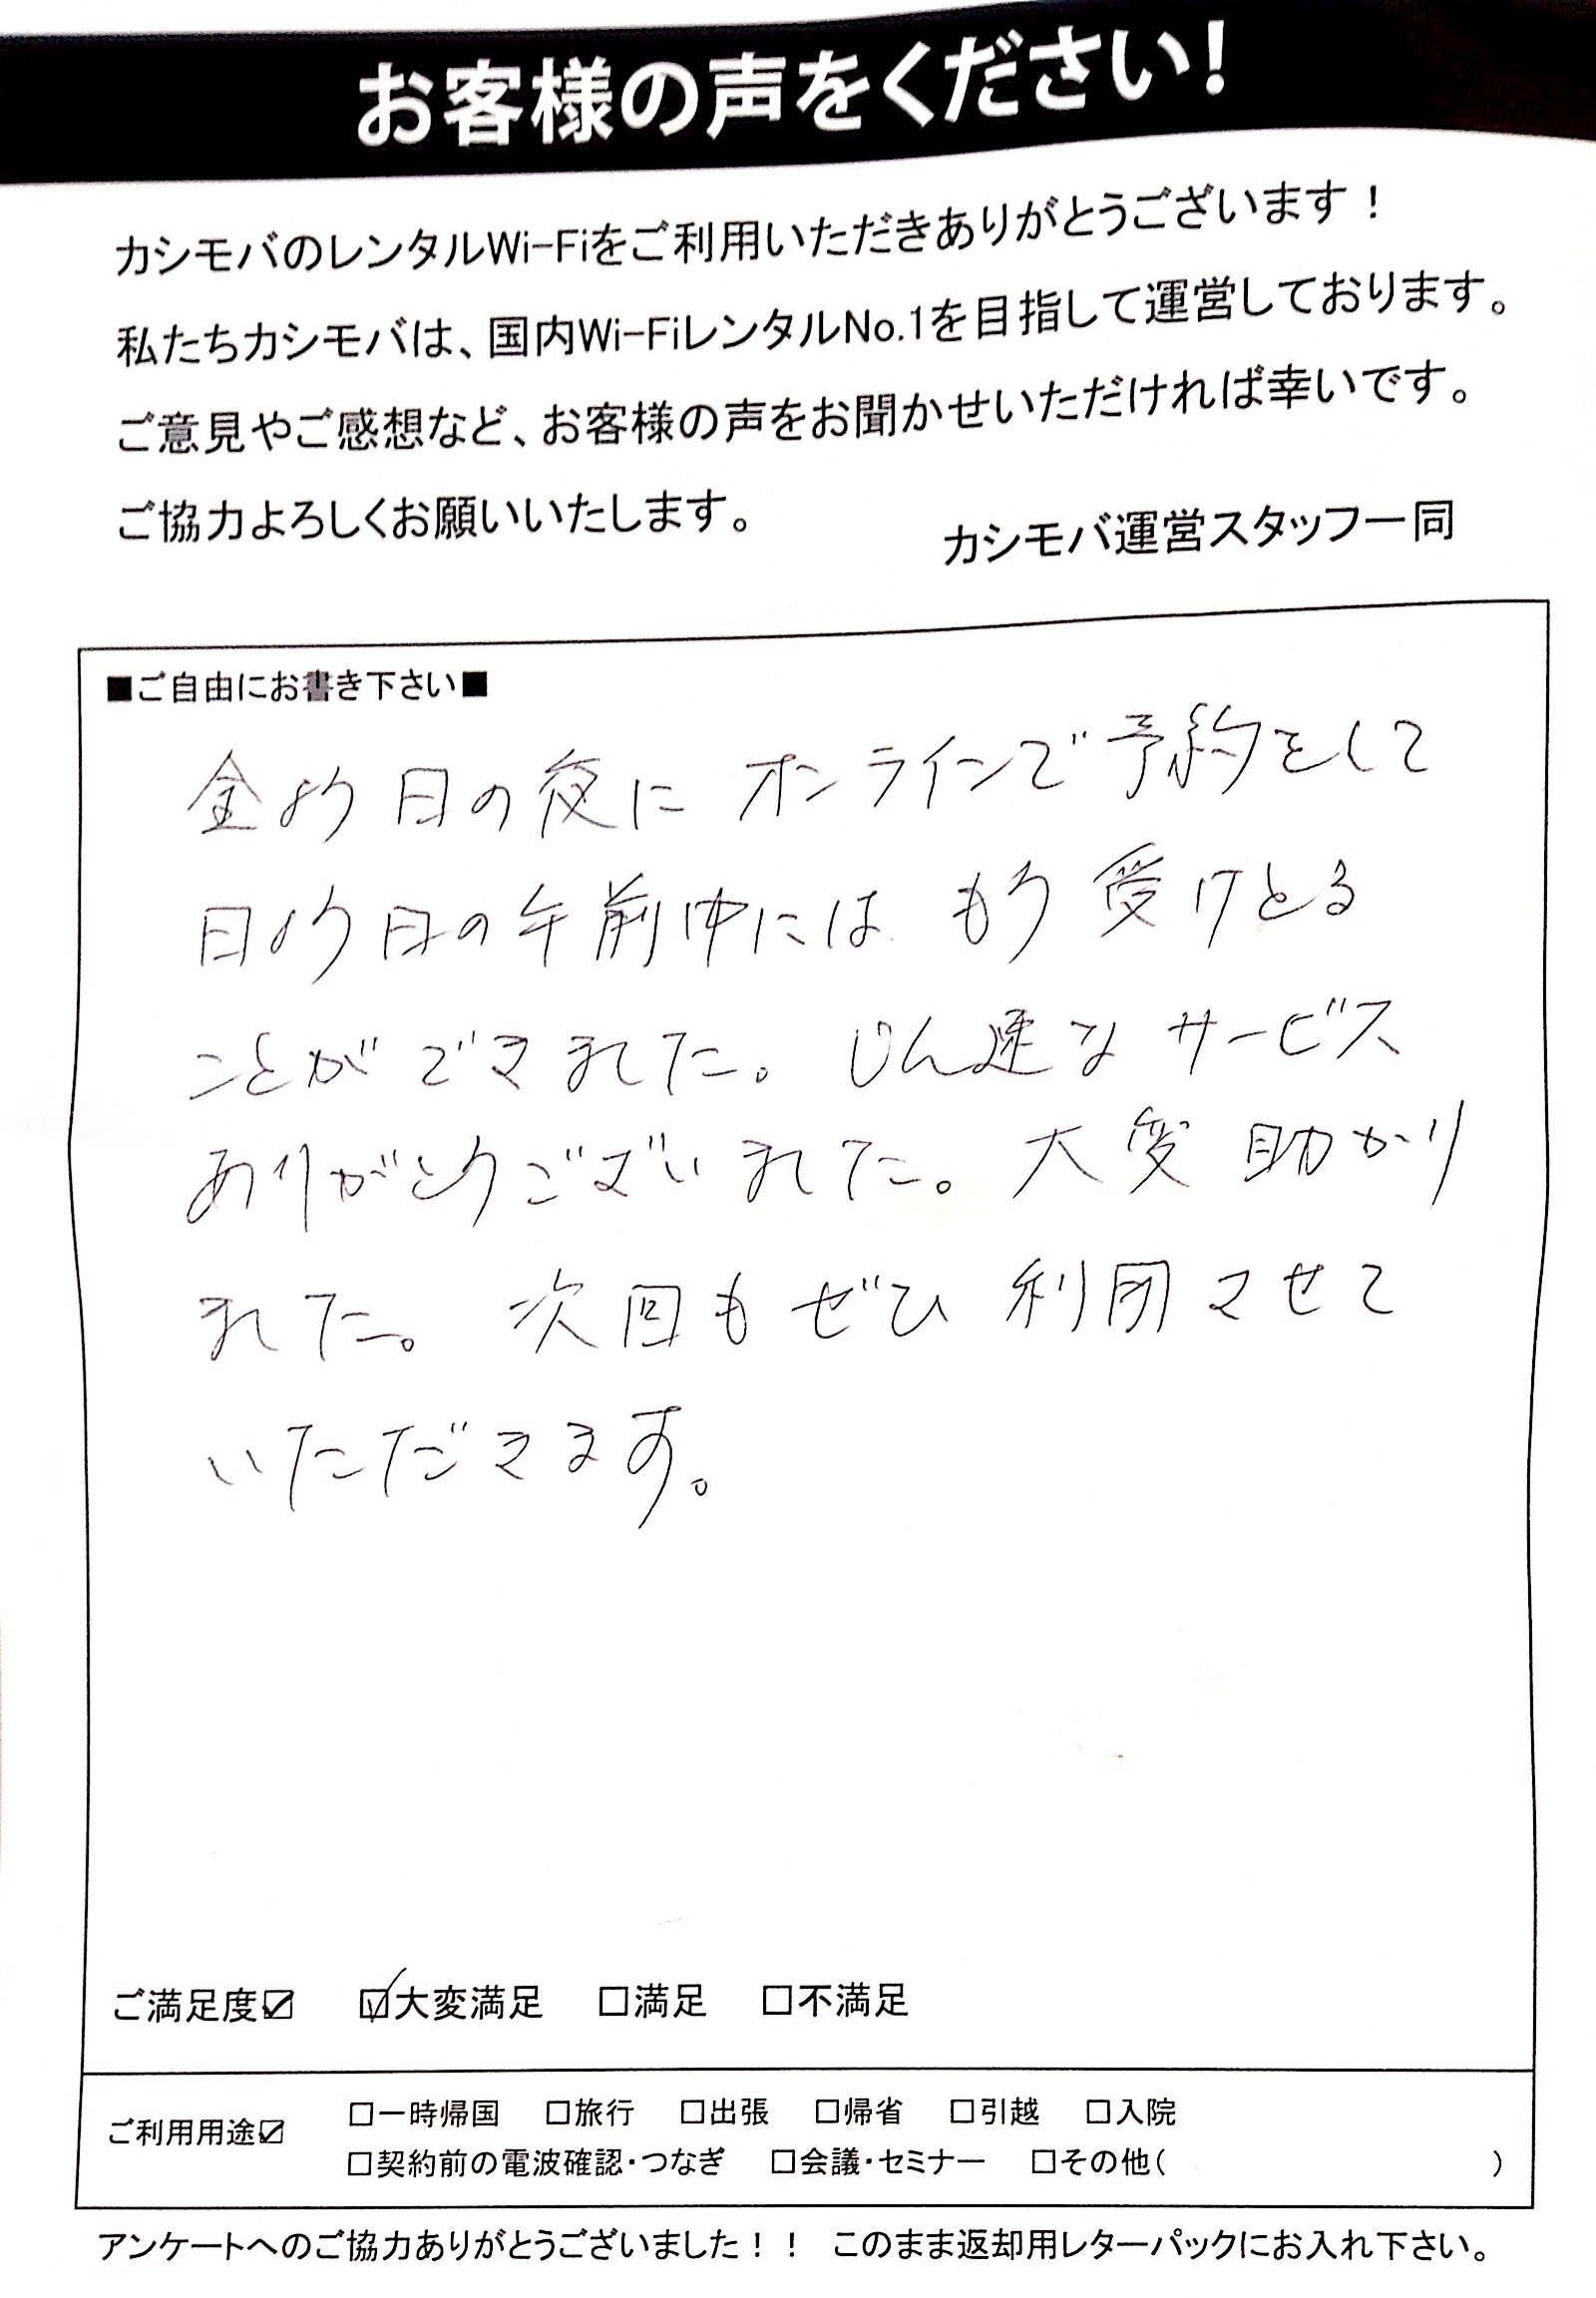 お客様の声をください!
カシモバのレンタルWi-Fiをご利用いただきありがとうございます！
私たちカシモバは、国内Wi-FiレンタルNo.1を目指して運営しております。
ご意見やご感想など、お客様の声をお聞かせいただければ幸いです。
ご協力よろしくお願いいたします。
カシモバ運営スタッフ一同
■ご自由にお書き下さい■
金よう日の夜にオンラインで予約をして
日よう日の午前中にはもう受けとる
ことができました。じん速なサービス
ありがとうございました。大変助かり
ました。次回もぜひ利用させて
いただきます。
ご満足度☑ ☑大変満足 □満足 □不満足
ご利用用途☑ □一時帰国 □旅行 □出張 □帰省 □引越 □入院
□契約前の電波確認・つなぎ □会議・セミナー □その他( )
アンケートへのご協力ありがとうございました！！ このまま返却用レターパックにお入れ下さい。